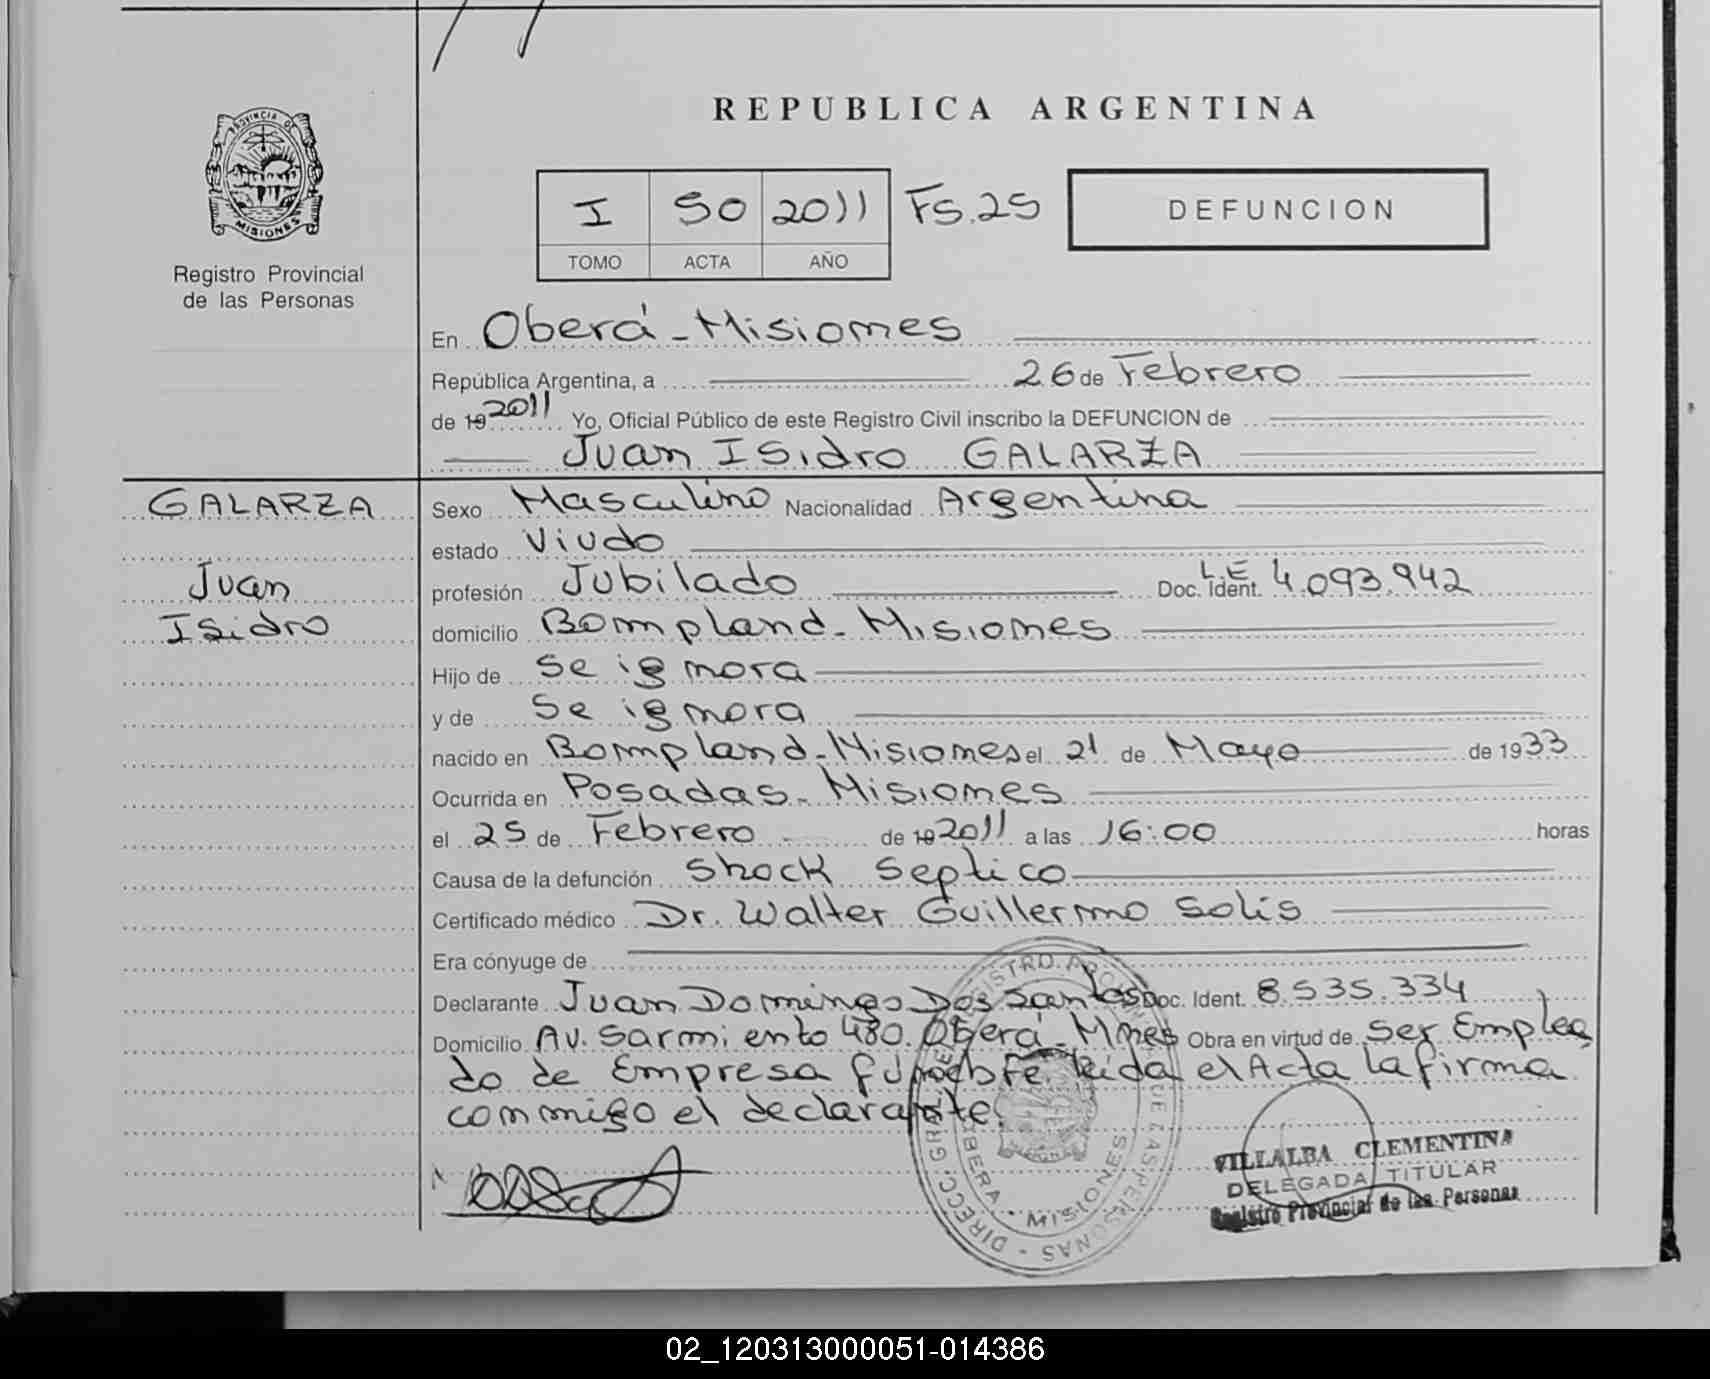 REPUBLICA ARGENTINA
PROVINCIA DE
MISIONES
Registro Provincial
de las Personas
I 50 2011 Fs.25
TOMO ACTA AÑO
DEFUNCION
En Oberá - Misiones
República Argentina, a 26 de Febrero
de 19 2011 Yo, Oficial Público de este Registro Civil inscribo la DEFUNCION de
Juan Isidro GALARZA
GALARZA
Juan
Isidro
Sexo Masculino Nacionalidad Argentina
estado Viudo
profesión Jubilado Doc. Ident. L.E 4.093.942
domicilio Bompland - Misiones
Hijo de se ignora
y de se ignora
nacido en Bompland - Misiones el 21 de Mayo de 1933
Ocurrida en Posadas - Misiones
el 25 de Febrero de 19 2011 a las 16:00 horas
Causa de la defunción Shock Septico
Certificado médico Dr. Walter Guillermo Solis
Era cónyuge de
Declarante Juan Domingo Dos Santos Doc. Ident. 8.535.334
Domicilio Av. Sarmiento 480. Oberá - Mnes Obra en virtud de Ser Emplea
do de Empresa funebre. leida el Acta la firma
conmigo el declarante.
OBERA - MISIONES
VILLALBA CLEMENTINA
DELEGADA TITULAR
Registro Provincial de las Personas
02_120313000051-014386